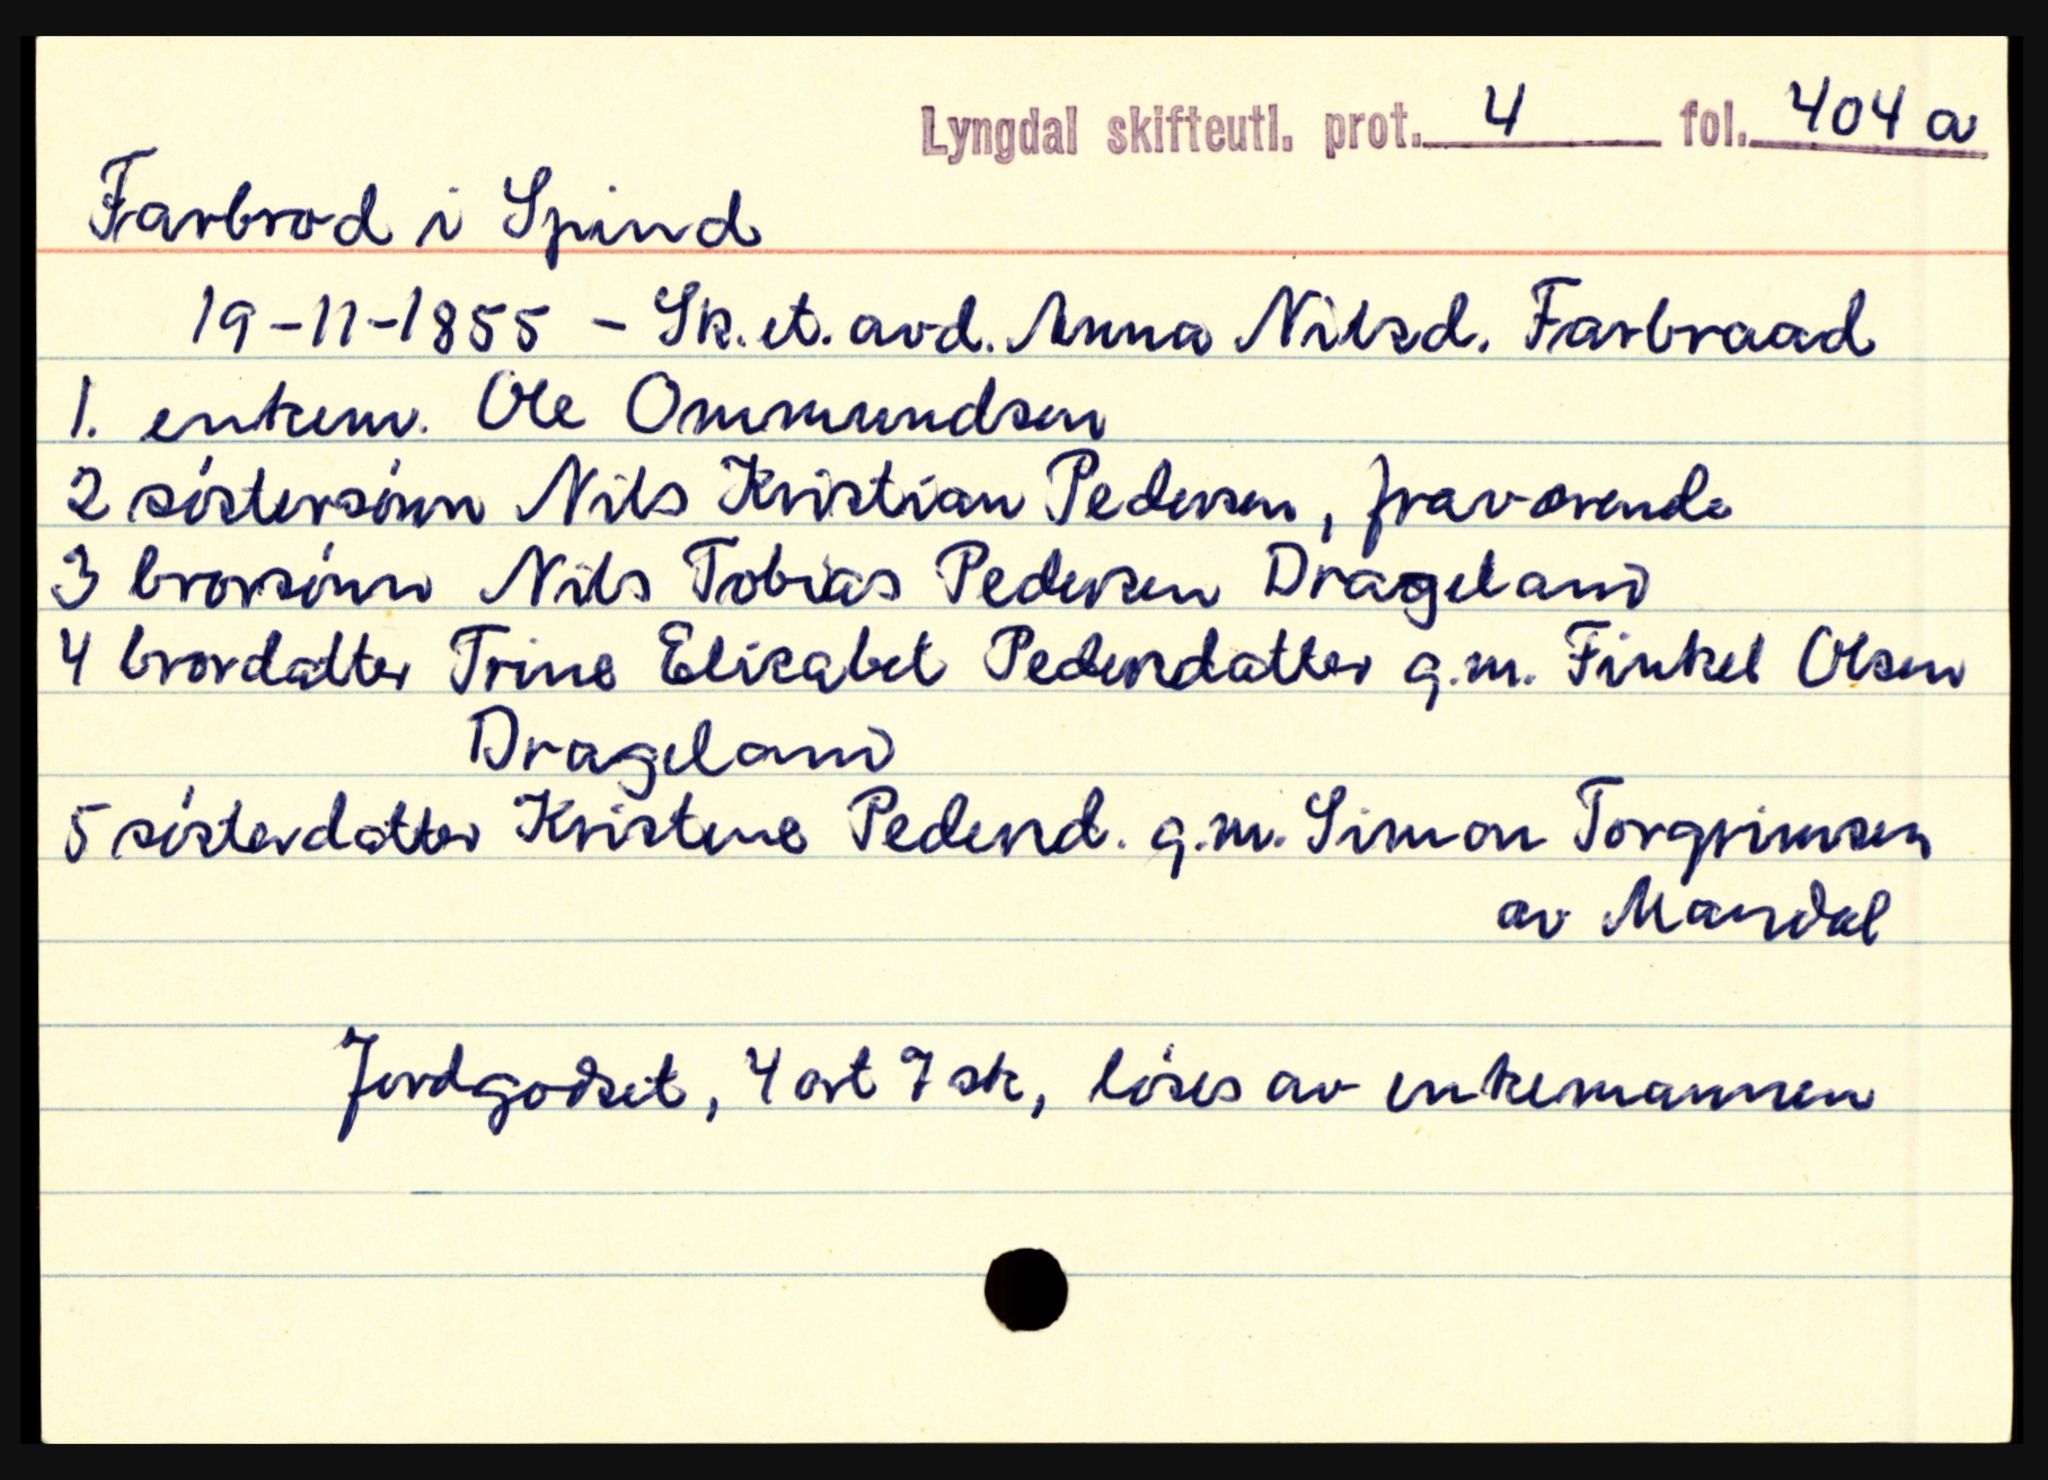 Lyngdal skifteutl. prot. 4 fol. 404 a
Farbrod i Spind
19-11-1855 - Sk. et. avd. Anna Nilsd. Farbraad
1. enkem. Ole Ommundsen
2 søstersønn Nils Kristian Pedersen, fraværende
3 brorsønn Nils Tobias Pedersen Drageland
4 brordatter Trine Elisabet Pedersdatter g.m. Finkel Olsen
Drageland
5 søsterdatter Kristine Pedersd. g.m. Simon Torgrimsen
av Mandal
Jordgodset, 4 ort 7 sk, løses av enkemannen